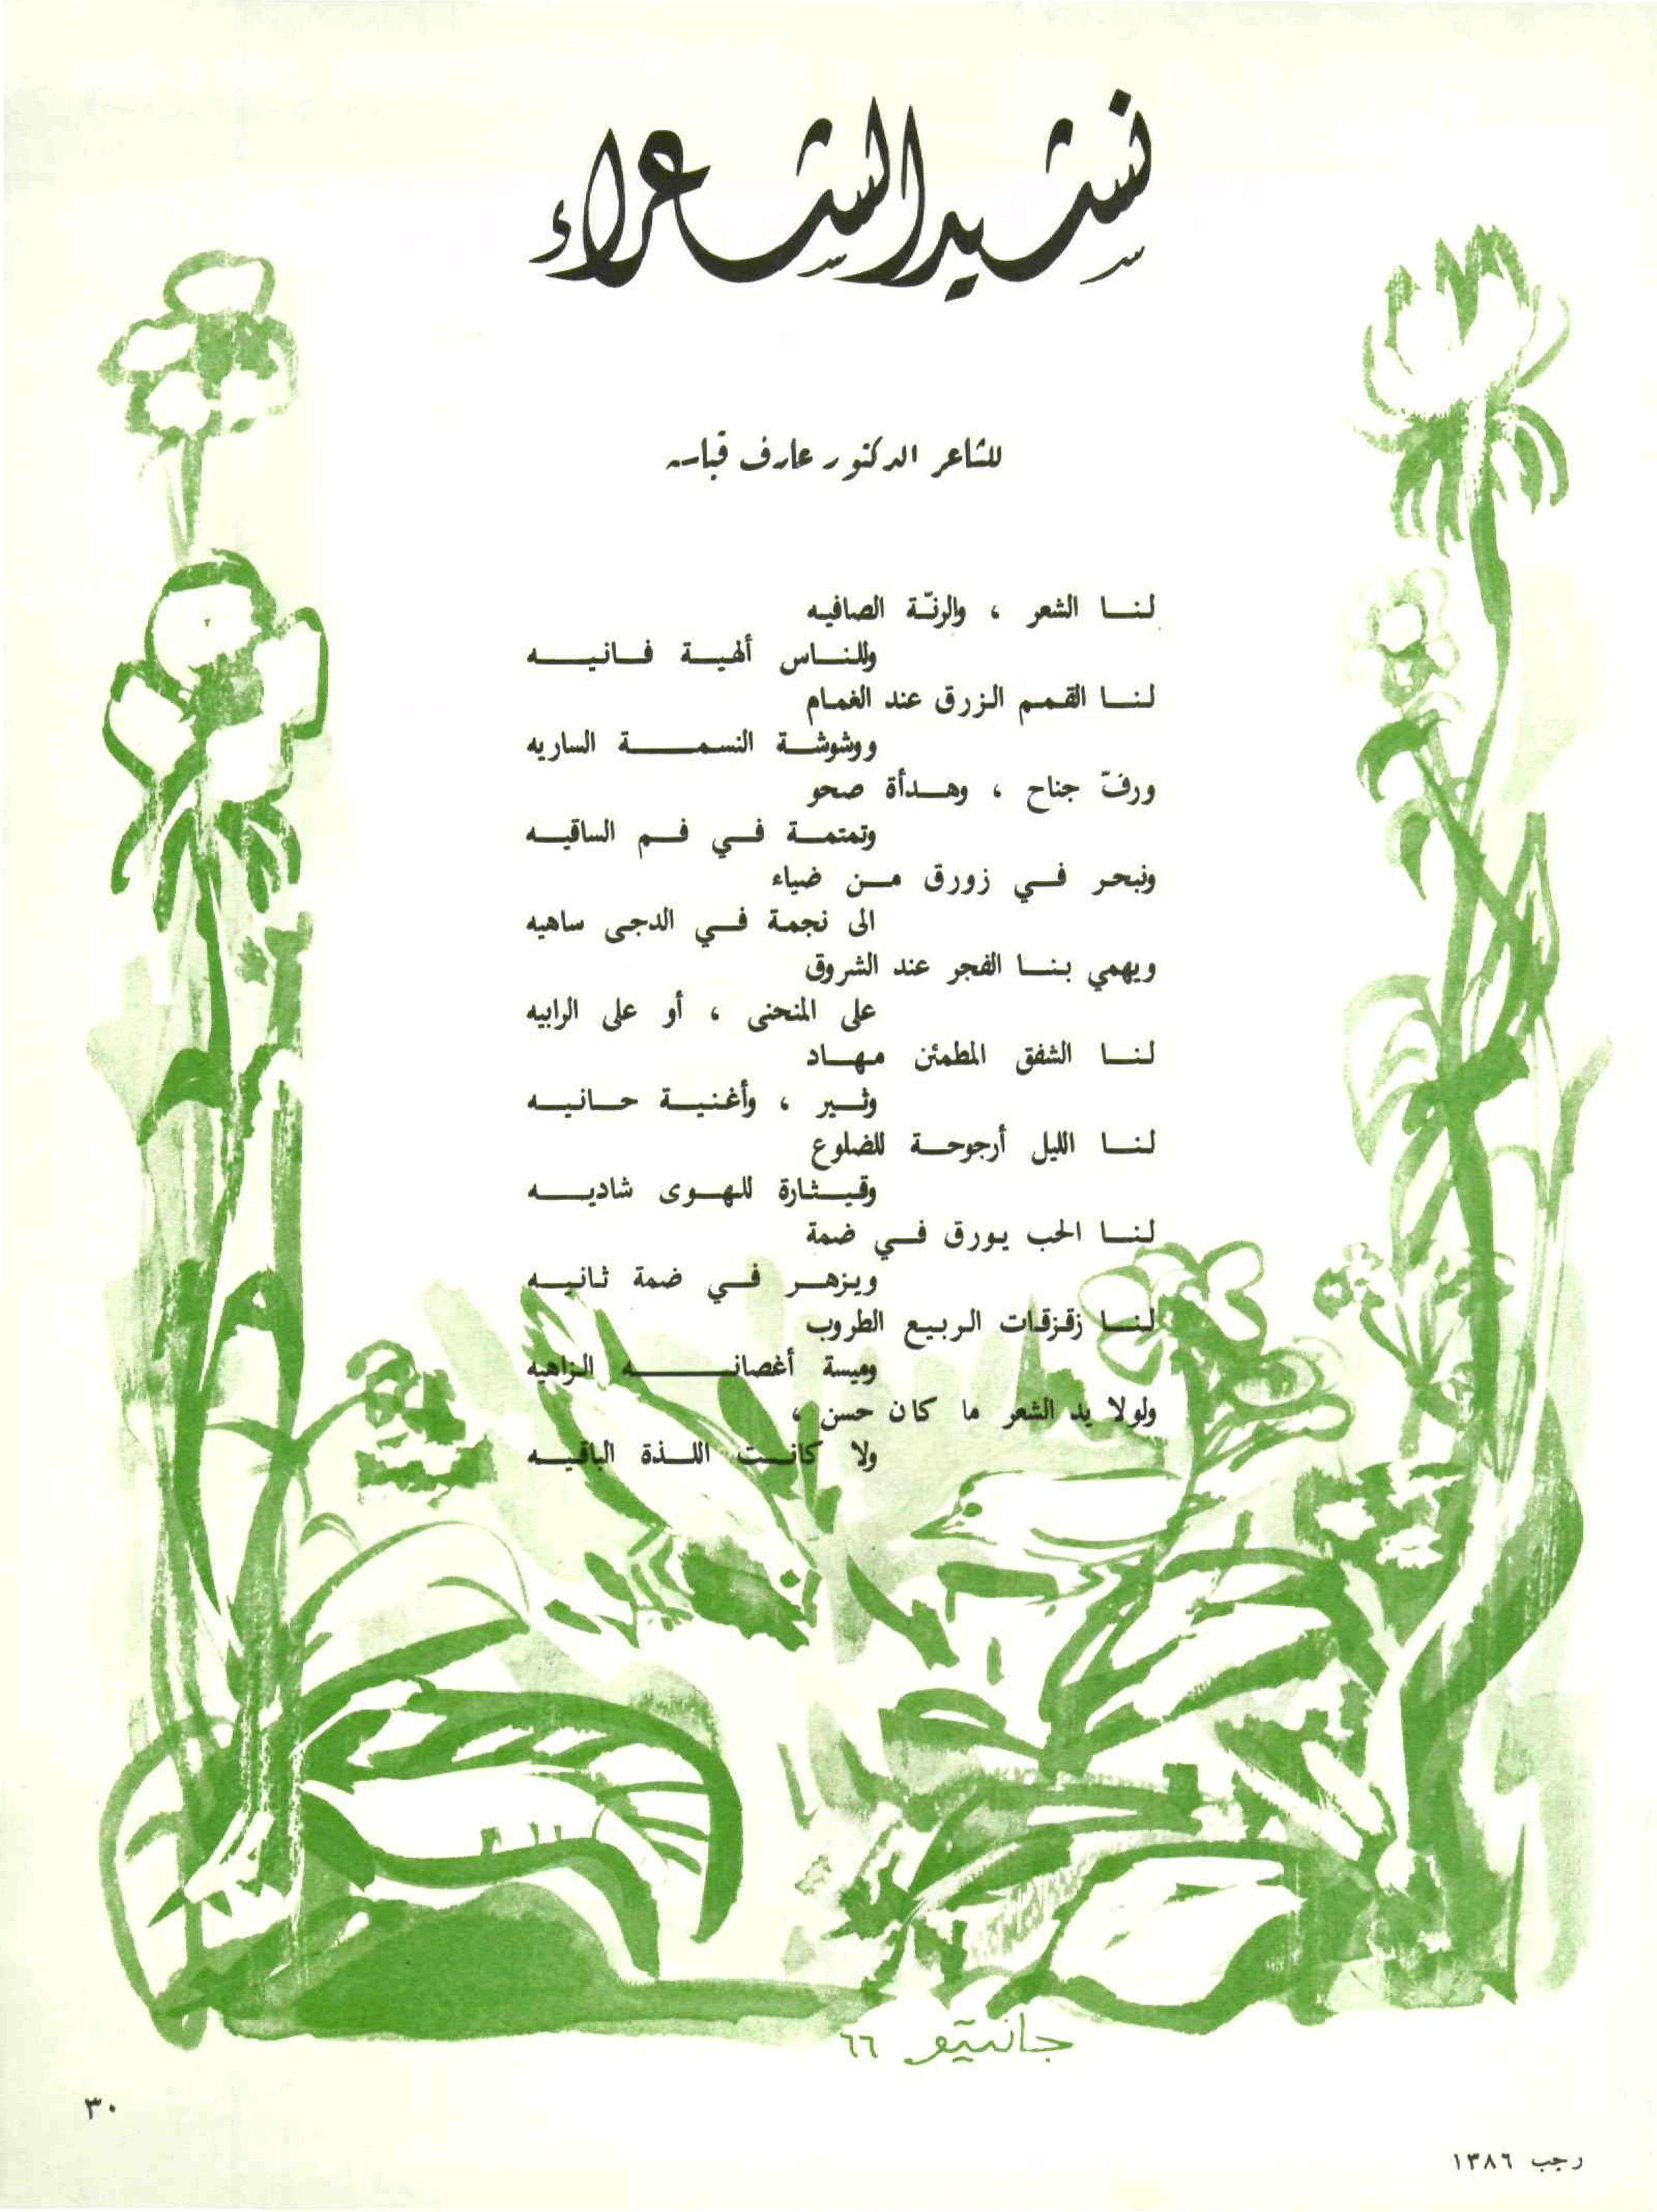 نشيد الشعراء
للشاعر الدكتور عارف قياسه
لنا الشعر ، والرنّة الصافيه
وللناس ألهية فانيه
لنا القمم الزرق عند الغمام
ووشوشة النسمة الساريه
ورفّ جناح ، وهدأة صحو
وتمتمة في فم الساقيه
ونبحر في زورق من ضياء
الى نجمة في الدجى ساهيه
ويهمي بنا الفجر عند الشروق
على المنحنى ، أو على الرابيه
لنا الشفق المطمئن مهاد
وثير ، وأغنية حانيه
لنا الليل أرجوحة للضلوع
وقيثارة للهوى شاديه
لنا الحب يورق في ضمة
ويزهر في ضمة ثانيه
لنا زقزقات الربيع الطروب
وميسة أغصانه الزاهيه
ولولا يد الشعر ما كان حسن ،
ولا كانت اللذة الباقيه
جانيتو ٦٦
٣٠
رجب ١٣٨٦